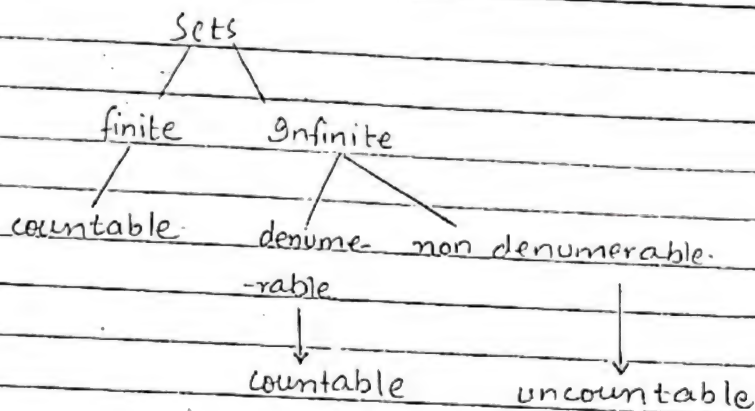 Sets
finite Infinite
countable. denume- non denumerable.
-rable
countable uncountable